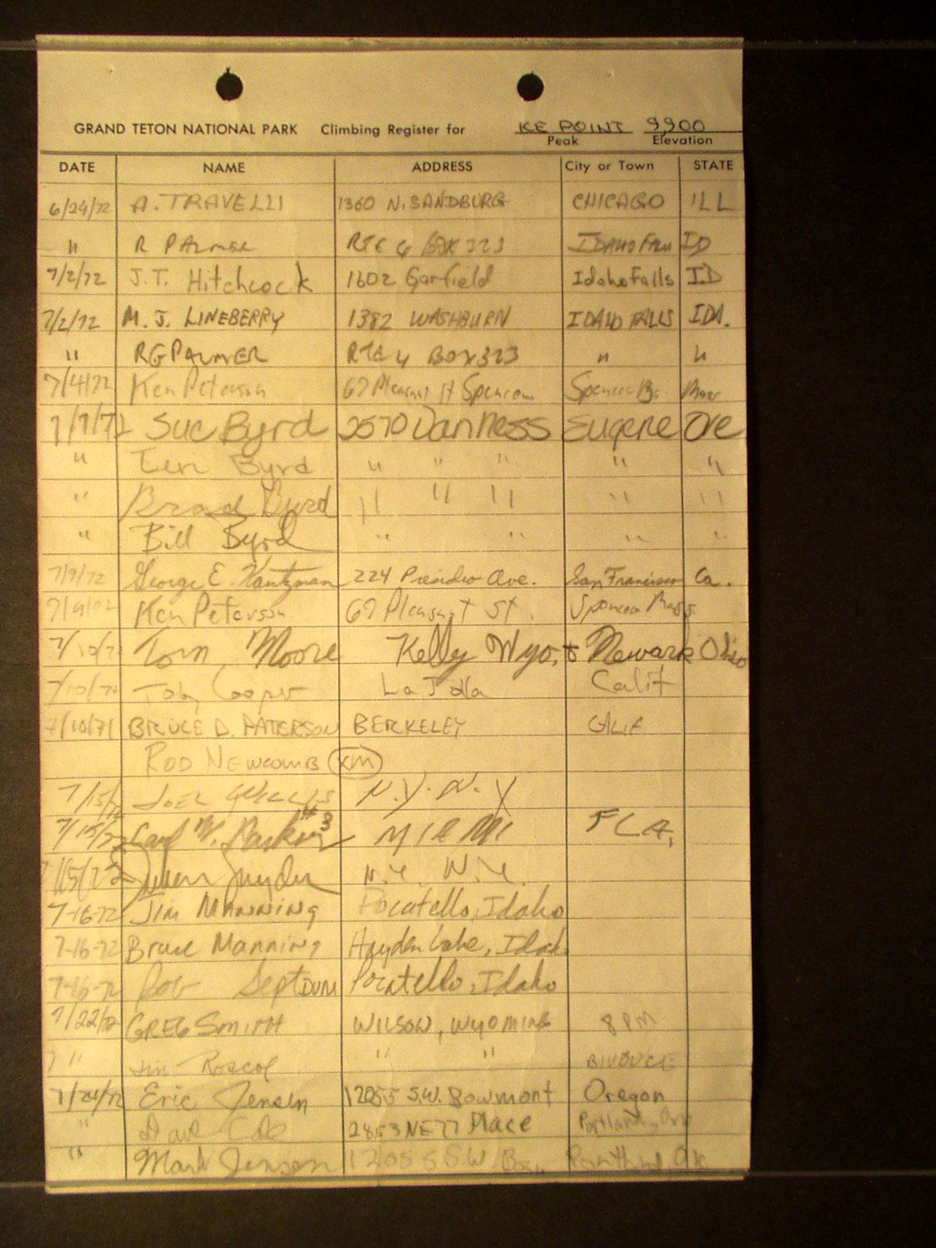 GRAND TETON NATIONAL PARK Climbing Register for KE POINT 9900
Peak Elevation
DATE NAME ADDRESS City or Town STATE
6/24/72 A. TRAVELLI 1360 N. SANDBURG CHICAGO ILL
" R PALMER RTE 4 BOX 323 IDAHO FALLS ID
7/2/72 J.T. Hitchcock 1602 Garfield Idaho Falls ID
7/2/72 M. J. LINEBERRY 1382 WASHBURN IDAHO FALLS IDA.
" RG PALMER RTE 4 BOX 323 " "
7/4/72 Ken Peterson 67 Pleasant St Spencer
7/9/72 Sue Byrd 2570 Van Ness Eugene Ore
" Teri Byrd " " " " "
" Brad Byrd " " " " "
" Bill Byrd " " " "
7/9/72 George E. 224 Presidio Ave. San Francisco Ca.
7/9/72 Ken Peterson 67 Pleasant St. Spencer Mass.
7/10/7 Tom Moore Kelly Wyo, & Newark Ohio
7/10/72 Toby Cooper La Jolla Calif
7/10/71 BRUCE D. PATERSON BERKELEY CALIF
ROD NEWCOMB XM
7/15/72 JOEL WILLIS N.Y. N.Y
7/15/72 Carl W. Parker #3 MIAMI FLA,
7/15/72 Snyder N.Y. N.Y.
7-16-72 JIM MANNING Pocatello, Idaho
7-16-72 Bruce Manning Hayden Lake, Idaho
7-16-72 Rob Pocatello, Idaho
7/22/72 GREG SMITH WILSON, WYOMING 8 PM
7 " Jim Roscoe " " BIVOUCE
7/24/72 Eric Jensen 12055 S.W. Bowmont Oregon
" Dave 2853 NE 77 Place Portland, Ore
" Mark Jensen 12055 SW